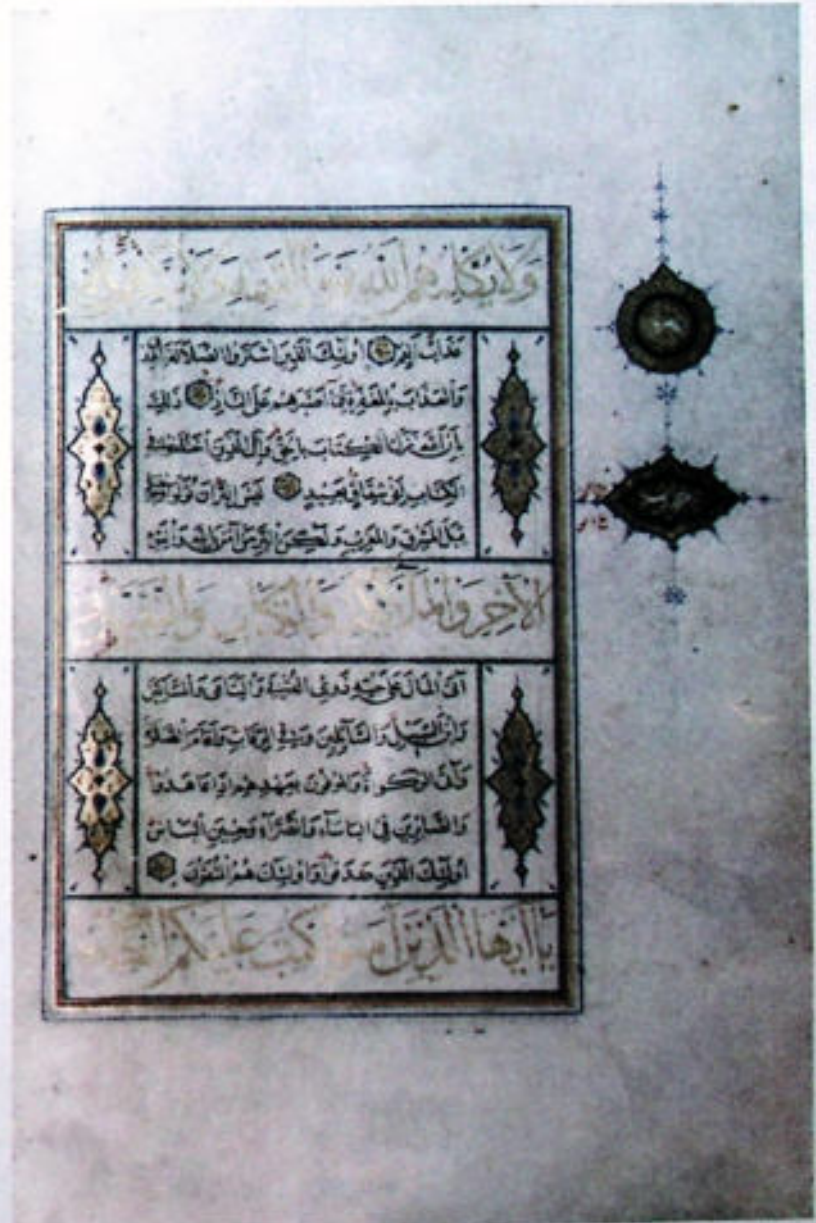 وَلَا يُكَلِّمُهُمُ اللَّهُ يَوْمَ الْقِيَمَةِ وَلَا يُزَكِّيهِمْ
عَذَابٌ أَلِيمٌ أُولَئِكَ الَّذِينَ اشْتَرَوُا الضَّلَالَةَ بِالْهُدَى
وَالْعَذَابَ بِالْمَغْفِرَةِ فَمَا أَصْبَرَهُمْ عَلَى النَّارِ ذَلِكَ
بِأَنَّ اللَّهَ نَزَّلَ الْكِتَابَ بِالْحَقِّ وَإِنَّ الَّذِينَ اخْتَلَفُوا فِي
الْكِتَابِ لَفِي شِقَاقٍ بَعِيدٍ لَيْسَ الْبِرَّ أَنْ تُوَلُّوا وُجُوهَكُمْ
قِبَلَ الْمَشْرِقِ وَالْمَغْرِبِ وَلَكِنَّ الْبِرَّ مَنْ آمَنَ بِاللَّهِ وَالْيَوْمِ
الْآخِرِ وَالْمَلَائِكَةِ وَالْكِتَابِ وَالنَّبِيِّينَ
آتَى الْمَالَ عَلَى حُبِّهِ ذَوِي الْقُرْبَى وَالْيَتَامَى وَالْمَسَاكِينَ
وَابْنَ السَّبِيلِ وَالسَّائِلِينَ وَفِي الرِّقَابِ وَأَقَامَ الصَّلَاةَ
وَآتَى الزَّكَوةَ وَالْمُوفُونَ بِعَهْدِهِمْ إِذَا عَاهَدُوا
وَالصَّابِرِينَ فِي الْبَأْسَاءِ وَالضَّرَّاءِ وَحِينَ الْبَأْسِ
أُولَئِكَ الَّذِينَ صَدَقُوا وَأُولَئِكَ هُمُ الْمُتَّقُونَ
يَا أَيُّهَا الَّذِينَ آمَنُوا كُتِبَ عَلَيْكُمُ